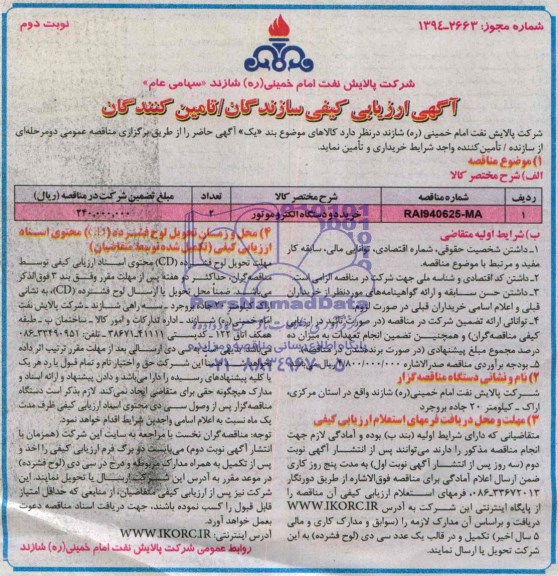 شماره مجوز: ۱۳۹۴-۲۶۶۳
نوبت دوم
شرکت پالایش نفت امام خمینی(ره) شازند «سهامی عام»
آگهی ارزیابی کیفی سازندگان/تامین کنندگان
شرکت پالایش نفت امام خمینی (ره) شازند درنظر دارد کالاهای موضوع بند «یک» آگهی حاضر را از طریق برگزاری مناقصه عمومی دومرحله‌ای
از سازنده / تأمین‌کننده واجد شرایط خریداری و تأمین نماید.
۱) موضوع مناقصه
الف) شرح مختصر کالا
ردیف شماره مناقصه شرح مختصر کالا تعداد مبلغ تضمین شرکت در مناقصه (ریال)
۱ RAI940625-MA خرید دو دستگاه الکتروموتور ۲ ۲۴۰,۰۰۰,۰۰۰
ب) شرایط اولیه متقاضی
۱ـ داشتن شخصیت حقوقی، شماره اقتصادی، توانایی مالی، سابقه کار
مفید و مرتبط با موضوع مناقصه.
۲ـ داشتن کد اقتصادی و شناسه ملی جهت شرکت در مناقصه الزامی است.
۳ـ داشتن حسن سابقه و ارائه گواهینامه‌های موردنظر از خریداران
قبلی و اعلام اسامی خریداران قبلی در صورت لزوم.
۴ـ توانائی ارائه تضمین شرکت در مناقصه (در صورت تأیید در ارزیابی
کیفی مناقصه‌گران) و همچنین تضمین انجام تعهدات به میزان ده
درصد مجموع مبلغ پیشنهادی (در صورت برنده شدن در مناقصه).
۵ـ بودجه برآوردی مناقصه صدرالاشاره ۴/۸۰۰/۰۰۰/۰۰۰ ریال می‌باشد.
۲) نام و نشانی دستگاه مناقصه‌گزار
شرکت پالایش نفت امام خمینی(ره) شازند واقع در استان مرکزی،
اراک - کیلومتر ۲۰ جاده بروجرد
۳) مهلت و محل دریافت فرمهای استعلام ارزیابی کیفی
متقاضیانی که دارای شرایط اولیه (بند ب) بوده و آمادگی لازم جهت
انجام مناقصه مذکور را دارند می‌توانند پس از انتشار آگهی نوبت
دوم (سه روز پس از انتشار آگهی نوبت اول) به مدت پنج روز کاری
ضمن ارسال اعلام آمادگی برای مناقصه فوق‌الاشاره از طریق دورنگار
۰۸۶-۳۳۶۷۲۰۱۲، فرمهای استعلام ارزیابی کیفی آن مناقصه را
از پایگاه اینترنتی این شرکت به آدرس WWW.IKORC.IR
دریافت و براساس آن مدارک لازمه را (سوابق و مدارک کاری و مالی
۵ سال اخیر) تکمیل و در قالب یک عدد سی دی (لوح فشرده) به این
شرکت تحویل یا ارسال نمایند.
۴) محل و زمان تحویل لوح فشرده (CD) محتوی اسناد
ارزیابی کیفی (تکمیل شده توسط متقاضیان)
مهلت تحویل لوح فشرده (CD) محتوی اسناد ارزیابی کیفی توسط
مناقصه‌گران، حداکثر دو هفته پس از مهلت مقرر وفق بند ۳ فوق‌الذکر
می‌باشد. ضمناً محل تحویل یا ارسال لوح فشرده (CD)، به نشانی
اراک - کیلومتر ۲۰ جاده بروجرد - سه راهی شازند - شرکت پالایش نفت
امام خمینی (ره) شازند - اداره تدارکات و امور کالا - ساختمان ب - طبقه
همکف اتاق ۴۱۱۱۱ - کدپستی ۳۸۶۷۱ - تلفن: ۰۸۶-۳۳۴۹۰۹۵۱
می‌باشد. بدیهی است به سی دی ارسالی بعد از مهلت مقرر ترتیب اثر داده
نخواهد شد. ضمناً این شرکت حق و اختیار تام و تمام قبول یا رد هر یک
یا کلیه پیشنهادهای رسیده را دارا می‌باشد و دادن پیشنهاد و ارائه اسناد و
مدارک هیچگونه حقی برای متقاضی ایجاد نمی‌کند. لازم بذکر است دستگاه
مناقصه‌گزار پس از وصول سی دی محتوی اسناد ارزیابی کیفی ظرف مدت
یک ماه نسبت به اعلام اسامی واجدین شرایط اقدام خواهد نمود.
توجه: مناقصه‌گران نخست با مراجعه به سایت این شرکت (همزمان با
انتشار آگهی نوبت دوم) می‌بایست دو برگ فرم ارزیابی کیفی را اخذ و
پس از تکمیل به همراه مدارک مربوطه و درج در سی دی (لوح فشرده)
در موعد مقرر به آدرس این شرکت ارسال یا تحویل نمایند. این
شرکت نیز پس از ارزیابی کیفی متقاضیان، از منابعی که حداقل امتیاز
قابل قبول را کسب نموده باشند، جهت دریافت اسناد مناقصه دعوت
بعمل خواهد آورد.
آدرس اینترنتی: WWW.IKORC.IR
روابط عمومی شرکت پالایش نفت امام خمینی (ره) شازند
ParsNamadData
پایگاه اطلاع رسانی مناقصه و مزایده
۰۲۱-۸۸۳۴۹۶۷۰-۵